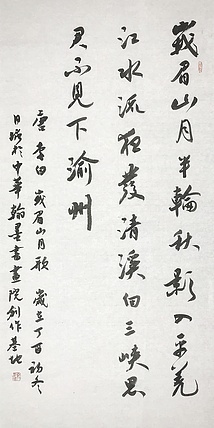 峩眉山月半輪秋影入平羌
江水流夜發清溪向三峽思
君不見下渝州
唐李白峩眉山月歌歲在丁酉初冬
日於中華翰墨書畫院創作基地